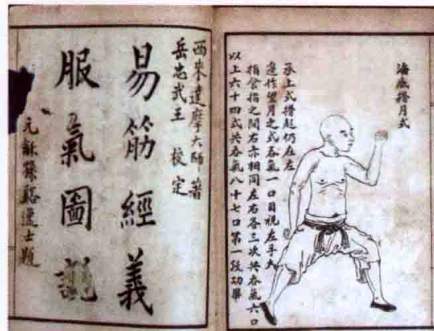 海底撈月式
承上式撈起仍在左
邊作望月之式吞氣一口目視左手大
指食指之間右亦相同左右各三次共吞氣六口
以上六十四式共吞氣八十七口第一段功畢
西來達摩大師著
岳忠武王 校定
易筋經義
服氣圖說
元龢蘇谿士題